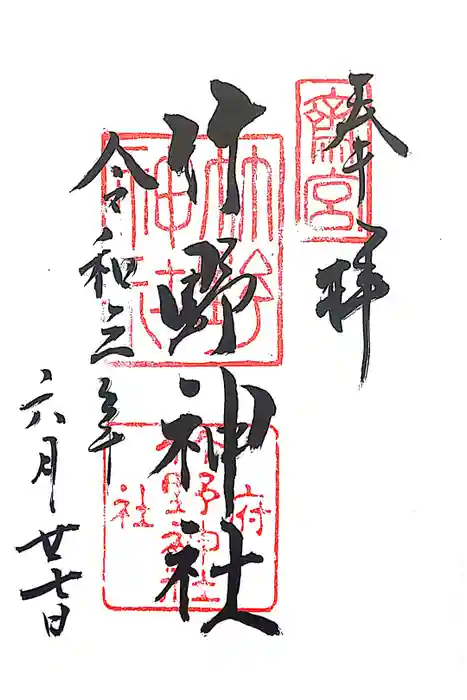 奉拝
斎宮
竹野神社
竹野神社
府社
竹野神社
令和三年
六月廿七日